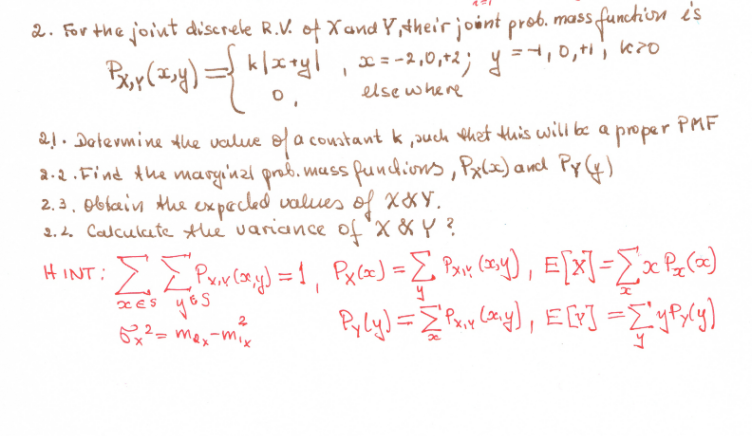 2. For the joint discrete R.V. of X and Y, their joint prob. mass function is
P_{X,Y}(x,y) = { k|x+y| , x = -2,0,+2; y = -1,0,+1, k>0
0, elsewhere
2.1. Determine the value of a constant k, such that this will be a proper PMF
2.2. Find the marginal prob. mass functions, P_X(x) and P_Y(y)
2.3. Obtain the expected values of X & Y.
2.4. Calculate the variance of X & Y?
HINT: ∑_{x∈S} ∑_{y∈S} P_{X,Y}(x,y) = 1, P_X(x) = ∑_y P_{X,Y}(x,y), E[X] = ∑_x x P_x(x)
σ_x² = m_{2x} - m_{1x}² P_Y(y) = ∑_x P_{X,Y}(x,y), E[Y] = ∑_y y P_Y(y)